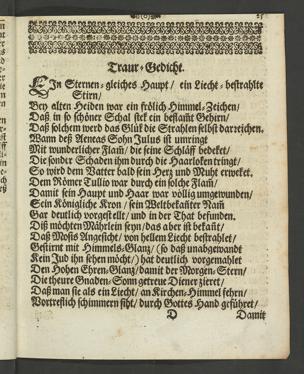 Traur-Gedicht.
EIn Sternen-gleiches Haupt/ ein Liecht-bestrahlte
Stirn/
Bey alten Heiden war ein frölich Himmel-Zeichen/
Daß in so schöner Schal stek ein beflam̃t Gehirn/
Daß solchem werd das Glük die Strahlen selbst darzeichen.
Wann deß Aeneas Sohn Julus ist umringt
Mit wunderlicher Flam̃/ die seine Schläff bedeket/
Die sonder Schaden ihm durch die Haarloken tringt/
So wird dem Vatter bald sein Herz und Muht erweket.
Dem Römer Tullio war durch ein solche Flam̃/
Damit sein Haupt und Haar war völlig umgewunden/
Sein Königliche Kron/ sein Weltbekañter Nam̃
Gar deutlich vorgestellt/ und in der That befunden.
Diß möchten Mährlein seyn/das aber ist bekañt/
Daß Moses Angesicht/ von hellem Liecht bestrahlet/
Gestirnt mit Himmels-Glanz/ (so daß unabgewandt
Kein Jud ihn sehen möcht/) hat deutlich vorgemahlet
Den Hohen Ehren-Glanz/damit der Morgen-Stern/
Die theure Gnaden-Sonn getreue Diener zieret/
Daß man sie als ein Liecht/ an Kirchen-Himmel fehrn/
Vortreflich schimmern siht/ durch Gottes Hand geführet/
D
Damit